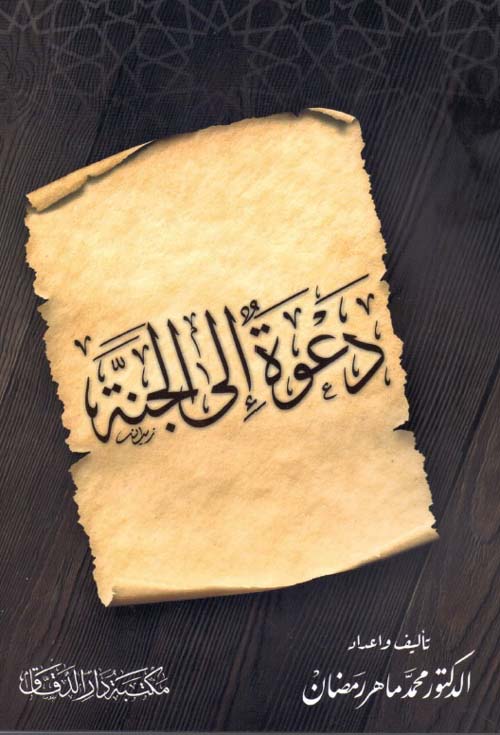 دَعْوَةٌ إِلى الجنَّة
تأليف واعداد
الدكتور محمَّد ماهر رمضان
مكتبة دار الدقاق